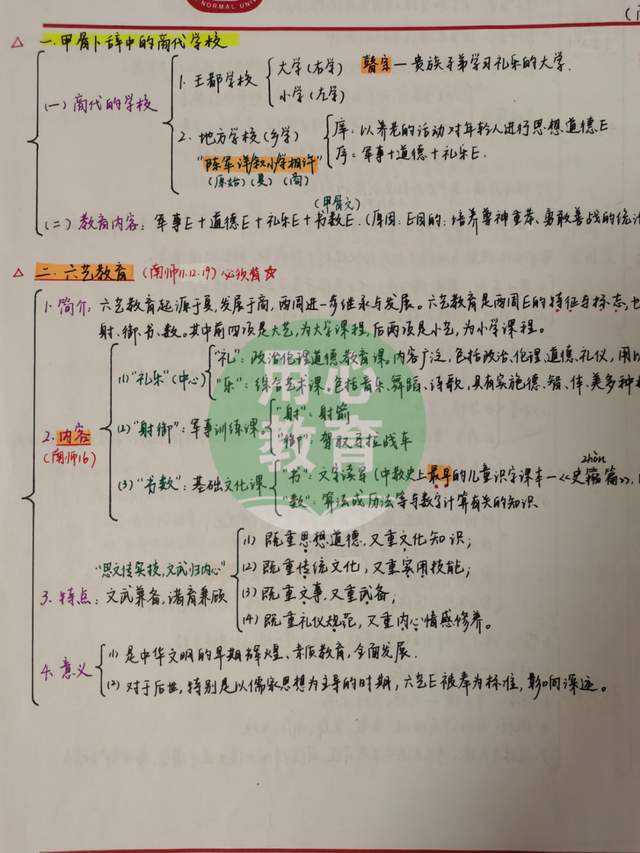 NORMAL UNIV
一.甲骨卜辞中的商代学校
(一)商代的学校
1. 王都学校
大学(右学) 瞽宗—贵族子弟学习礼乐的大学.
小学(左学)
2. 地方学校(乡学)
庠: 以养老的活动对年轻人进行思想道德E
序: 军事+道德+礼乐E.
(原始)(夏)(商)
(甲骨文)
(二)教育内容: 军事E+道德E+礼乐E+书数E.(原因:E目的:培养尊神重孝、勇敢善战的统治
二.六艺教育 (南师11.12.19)必须背☆
1.简介: 六艺教育起源于夏,发展于商,西周进一步继承与发展。六艺教育是西周E的特征与标志,也
射、御、书、数。其中前四项是大艺,为大学课程,后两项是小艺,为小学课程。
2.内容
(南师16)
(1)"礼乐"(中心)
"礼": 政治伦理道德教育课,内容广泛,包括政治、伦理、道德、礼仪,用以
"乐": 综合艺术课.包括音乐、舞蹈、诗歌,具有实施德、智、体、美多种
(2)"射御": 军事训练课
"射": 射箭
"御": 驾驭马拉战车
(3)"书数": 基础文化课
"书": 文字读写(中教史上最早的儿童识字课本—《史籀篇》,
zhòu
"数": 算法或历法等与数字计算有关的知识
用心
教育
3. 特点: 文武兼备,诸育兼顾
(1) 既重思想道德,又重文化知识;
(2) 既重传统文化,又重实用技能;
(3) 既重文事,又重武备;
(4) 既重礼仪规范,又重内心情感修养。
4. 意义
(1) 是中华文明的早期辉煌、素质教育,全面发展.
(2) 对于后世,特别是以儒家思想为主导的时期,六艺E被奉为标准,影响深远。